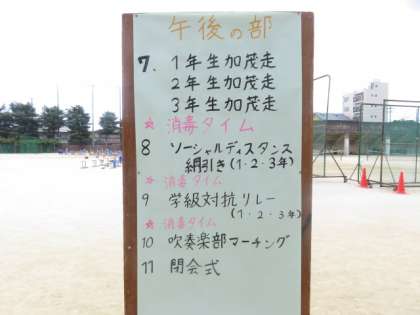 午後の部
7. 1年生加茂走
2年生加茂走
3年生加茂走
☆ 消毒タイム
8 ソーシャルディスタンス
綱引き(1・2・3年)
☆ 消毒タイム
9 学級対抗リレー
(1・2・3年)
☆ 消毒タイム
10 吹奏楽部マーチング
11 閉会式